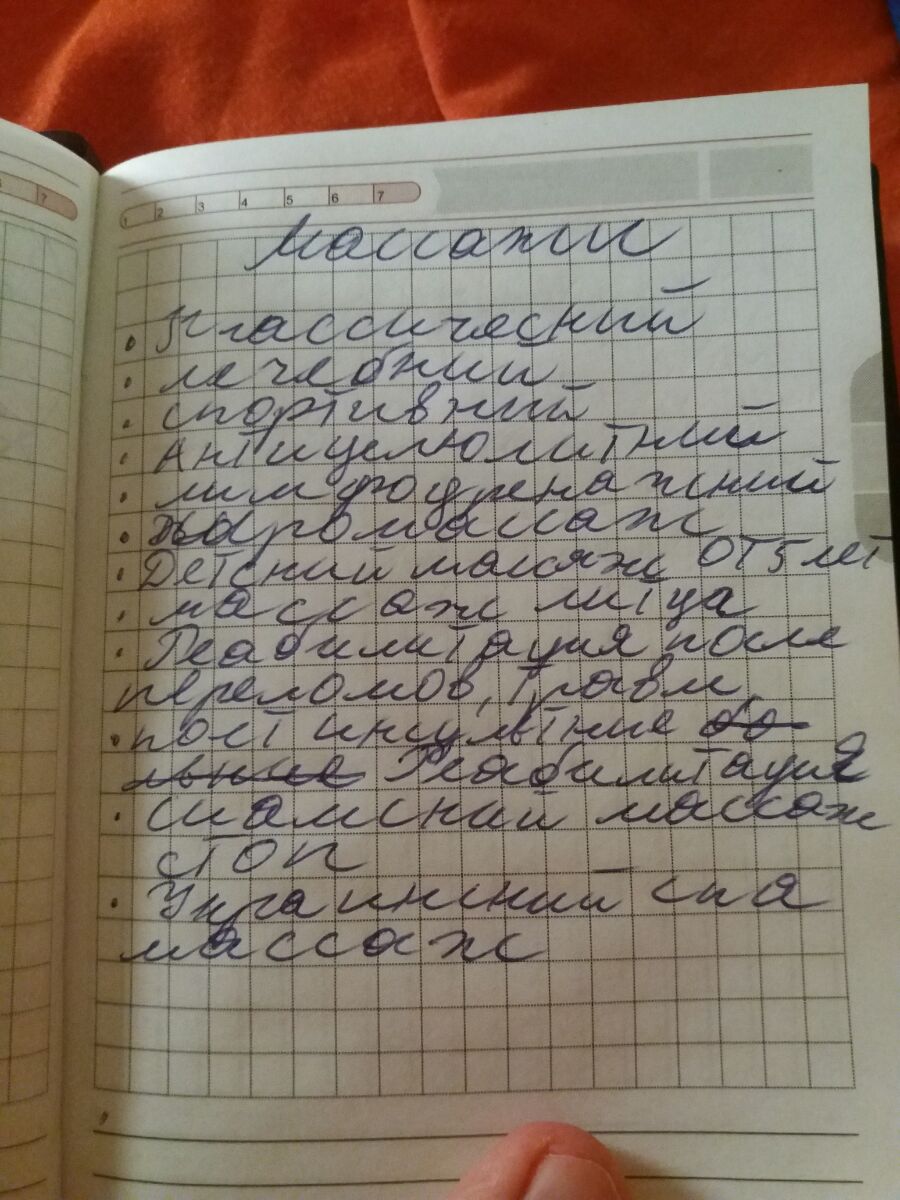 1 2 3 4 5 6 7
7
Массажи
• Классический
• лечебний
• спортивний
• Антицелюлитний
• лимфодренажний
• Аромассаж
• Детский масяж от 5 лет
• массаж лица
• Реабилитация после
переломов, травм
• пост инсультние бо
льние Реабилитация
• сиамский массаж
стоп
• Украинский спа
массаж